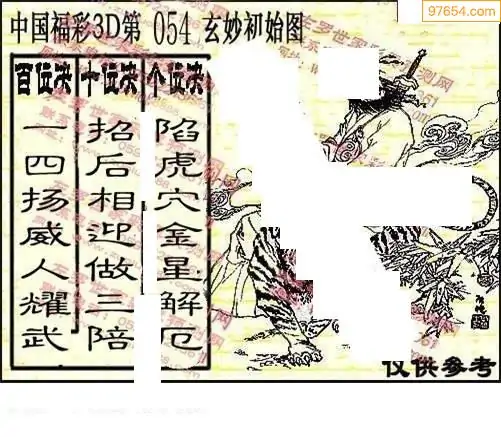 97654.com
中国福彩3D第 054 玄妙初始图
百位决 十位决 个位决
一四扬威人耀武
招后相迎做三陪
陷虎穴金星解厄
仅供参考